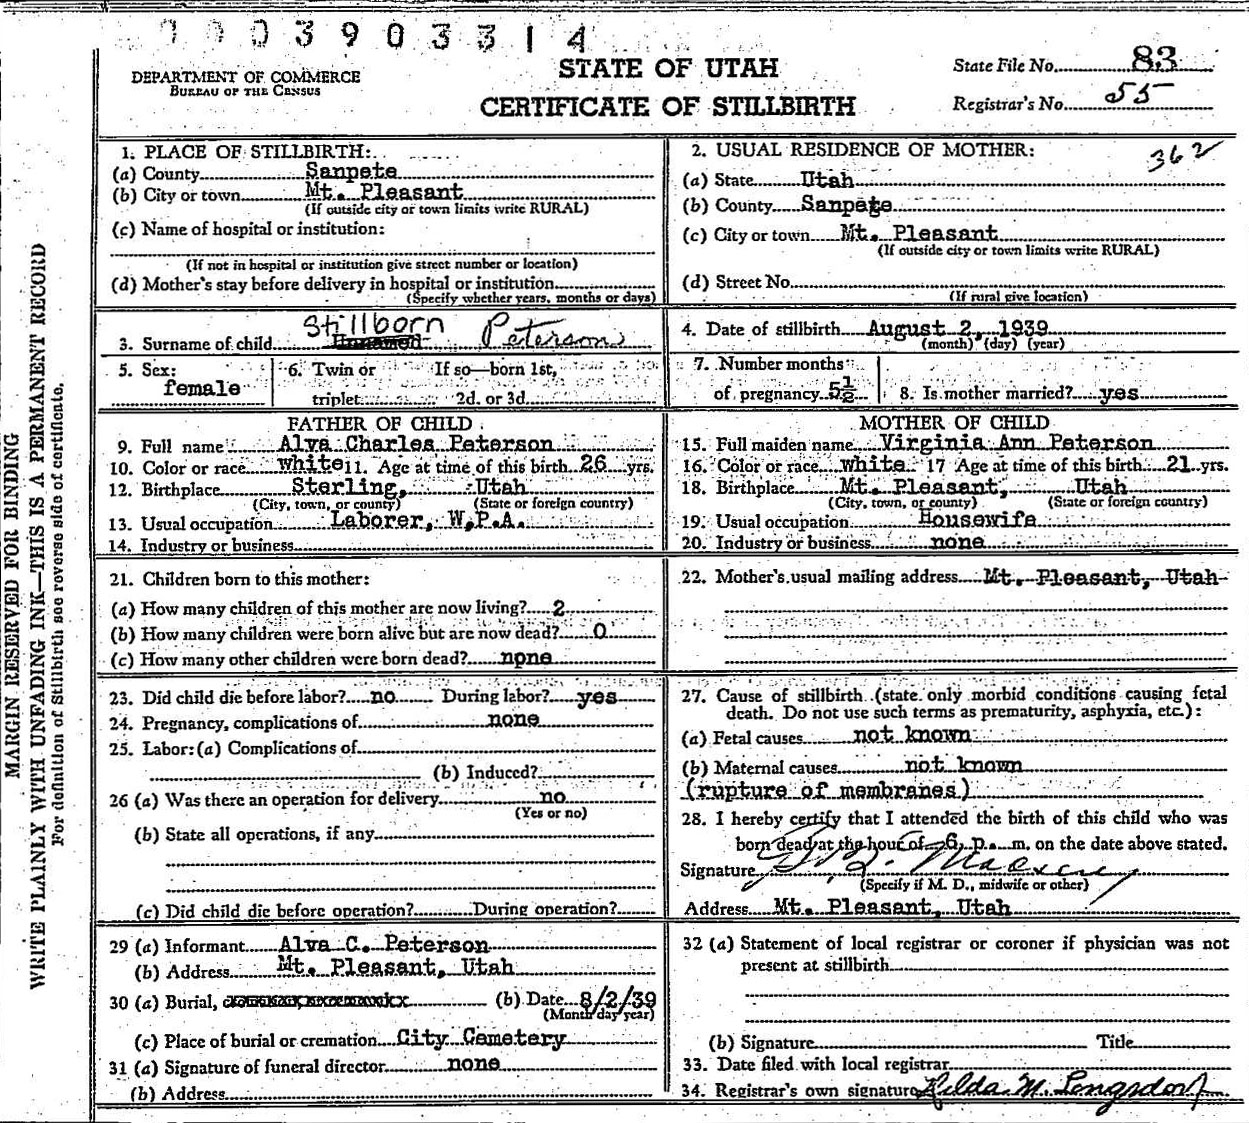 0003903314
DEPARTMENT OF COMMERCE
BUREAU OF THE CENSUS
STATE OF UTAH
CERTIFICATE OF STILLBIRTH
State File No. 83
Registrar's No. 55
MARGIN RESERVED FOR BINDING
WRITE PLAINLY WITH UNFADING INK—THIS IS A PERMANENT RECORD
For definition of Stillbirth see reverse side of certificate.
1. PLACE OF STILLBIRTH:
(a) County Sanpete
(b) City or town Mt. Pleasant
(If outside city or town limits write RURAL)
(c) Name of hospital or institution:
(If not in hospital or institution give street number or location)
(d) Mother's stay before delivery in hospital or institution
(Specify whether years, months or days)
2. USUAL RESIDENCE OF MOTHER: 362
(a) State Utah
(b) County Sanpete
(c) City or town Mt. Pleasant
(If outside city or town limits write RURAL)
(d) Street No.
(If rural give location)
3. Surname of child Stillborn Unnamed Peterson
4. Date of stillbirth August 2, 1939
(month) (day) (year)
5. Sex: female
6. Twin or triplet If so—born 1st, 2d. or 3d.
7. Number months of pregnancy 5½
8. Is mother married? yes
FATHER OF CHILD
9. Full name Alva Charles Peterson
10. Color or race white 11. Age at time of this birth 26 yrs.
12. Birthplace Sterling, Utah
(City, town, or county) (State or foreign country)
13. Usual occupation Laborer, W.P.A.
14. Industry or business
MOTHER OF CHILD
15. Full maiden name Virginia Ann Peterson
16. Color or race white 17 Age at time of this birth 21 yrs.
18. Birthplace Mt. Pleasant, Utah
(City, town, or county) (State or foreign country)
19. Usual occupation Housewife
20. Industry or business none
21. Children born to this mother:
(a) How many children of this mother are now living? 2
(b) How many children were born alive but are now dead? 0
(c) How many other children were born dead? none
22. Mother's usual mailing address Mt. Pleasant, Utah
23. Did child die before labor? no During labor? yes
24. Pregnancy, complications of none
25. Labor: (a) Complications of
(b) Induced?
26 (a) Was there an operation for delivery no
(Yes or no)
(b) State all operations, if any
(c) Did child die before operation? During operation?
27. Cause of stillbirth (state only morbid conditions causing fetal
death. Do not use such terms as prematurity, asphyxia, etc.):
(a) Fetal causes not known
(b) Maternal causes not known
(rupture of membranes)
28. I hereby certify that I attended the birth of this child who was
born dead at the hour of 6 p. m. on the date above stated.
Signature
(Specify if M. D., midwife or other)
Address Mt. Pleasant, Utah
29 (a) Informant Alva C. Peterson
(b) Address Mt. Pleasant, Utah
30 (a) Burial, (b) Date 8/2/39
(Month day year)
(c) Place of burial or cremation City Cemetery
31 (a) Signature of funeral director none
(b) Address
32 (a) Statement of local registrar or coroner if physician was not
present at stillbirth
(b) Signature Title
33. Date filed with local registrar
34. Registrar's own signature Hilda M. Longsdorf